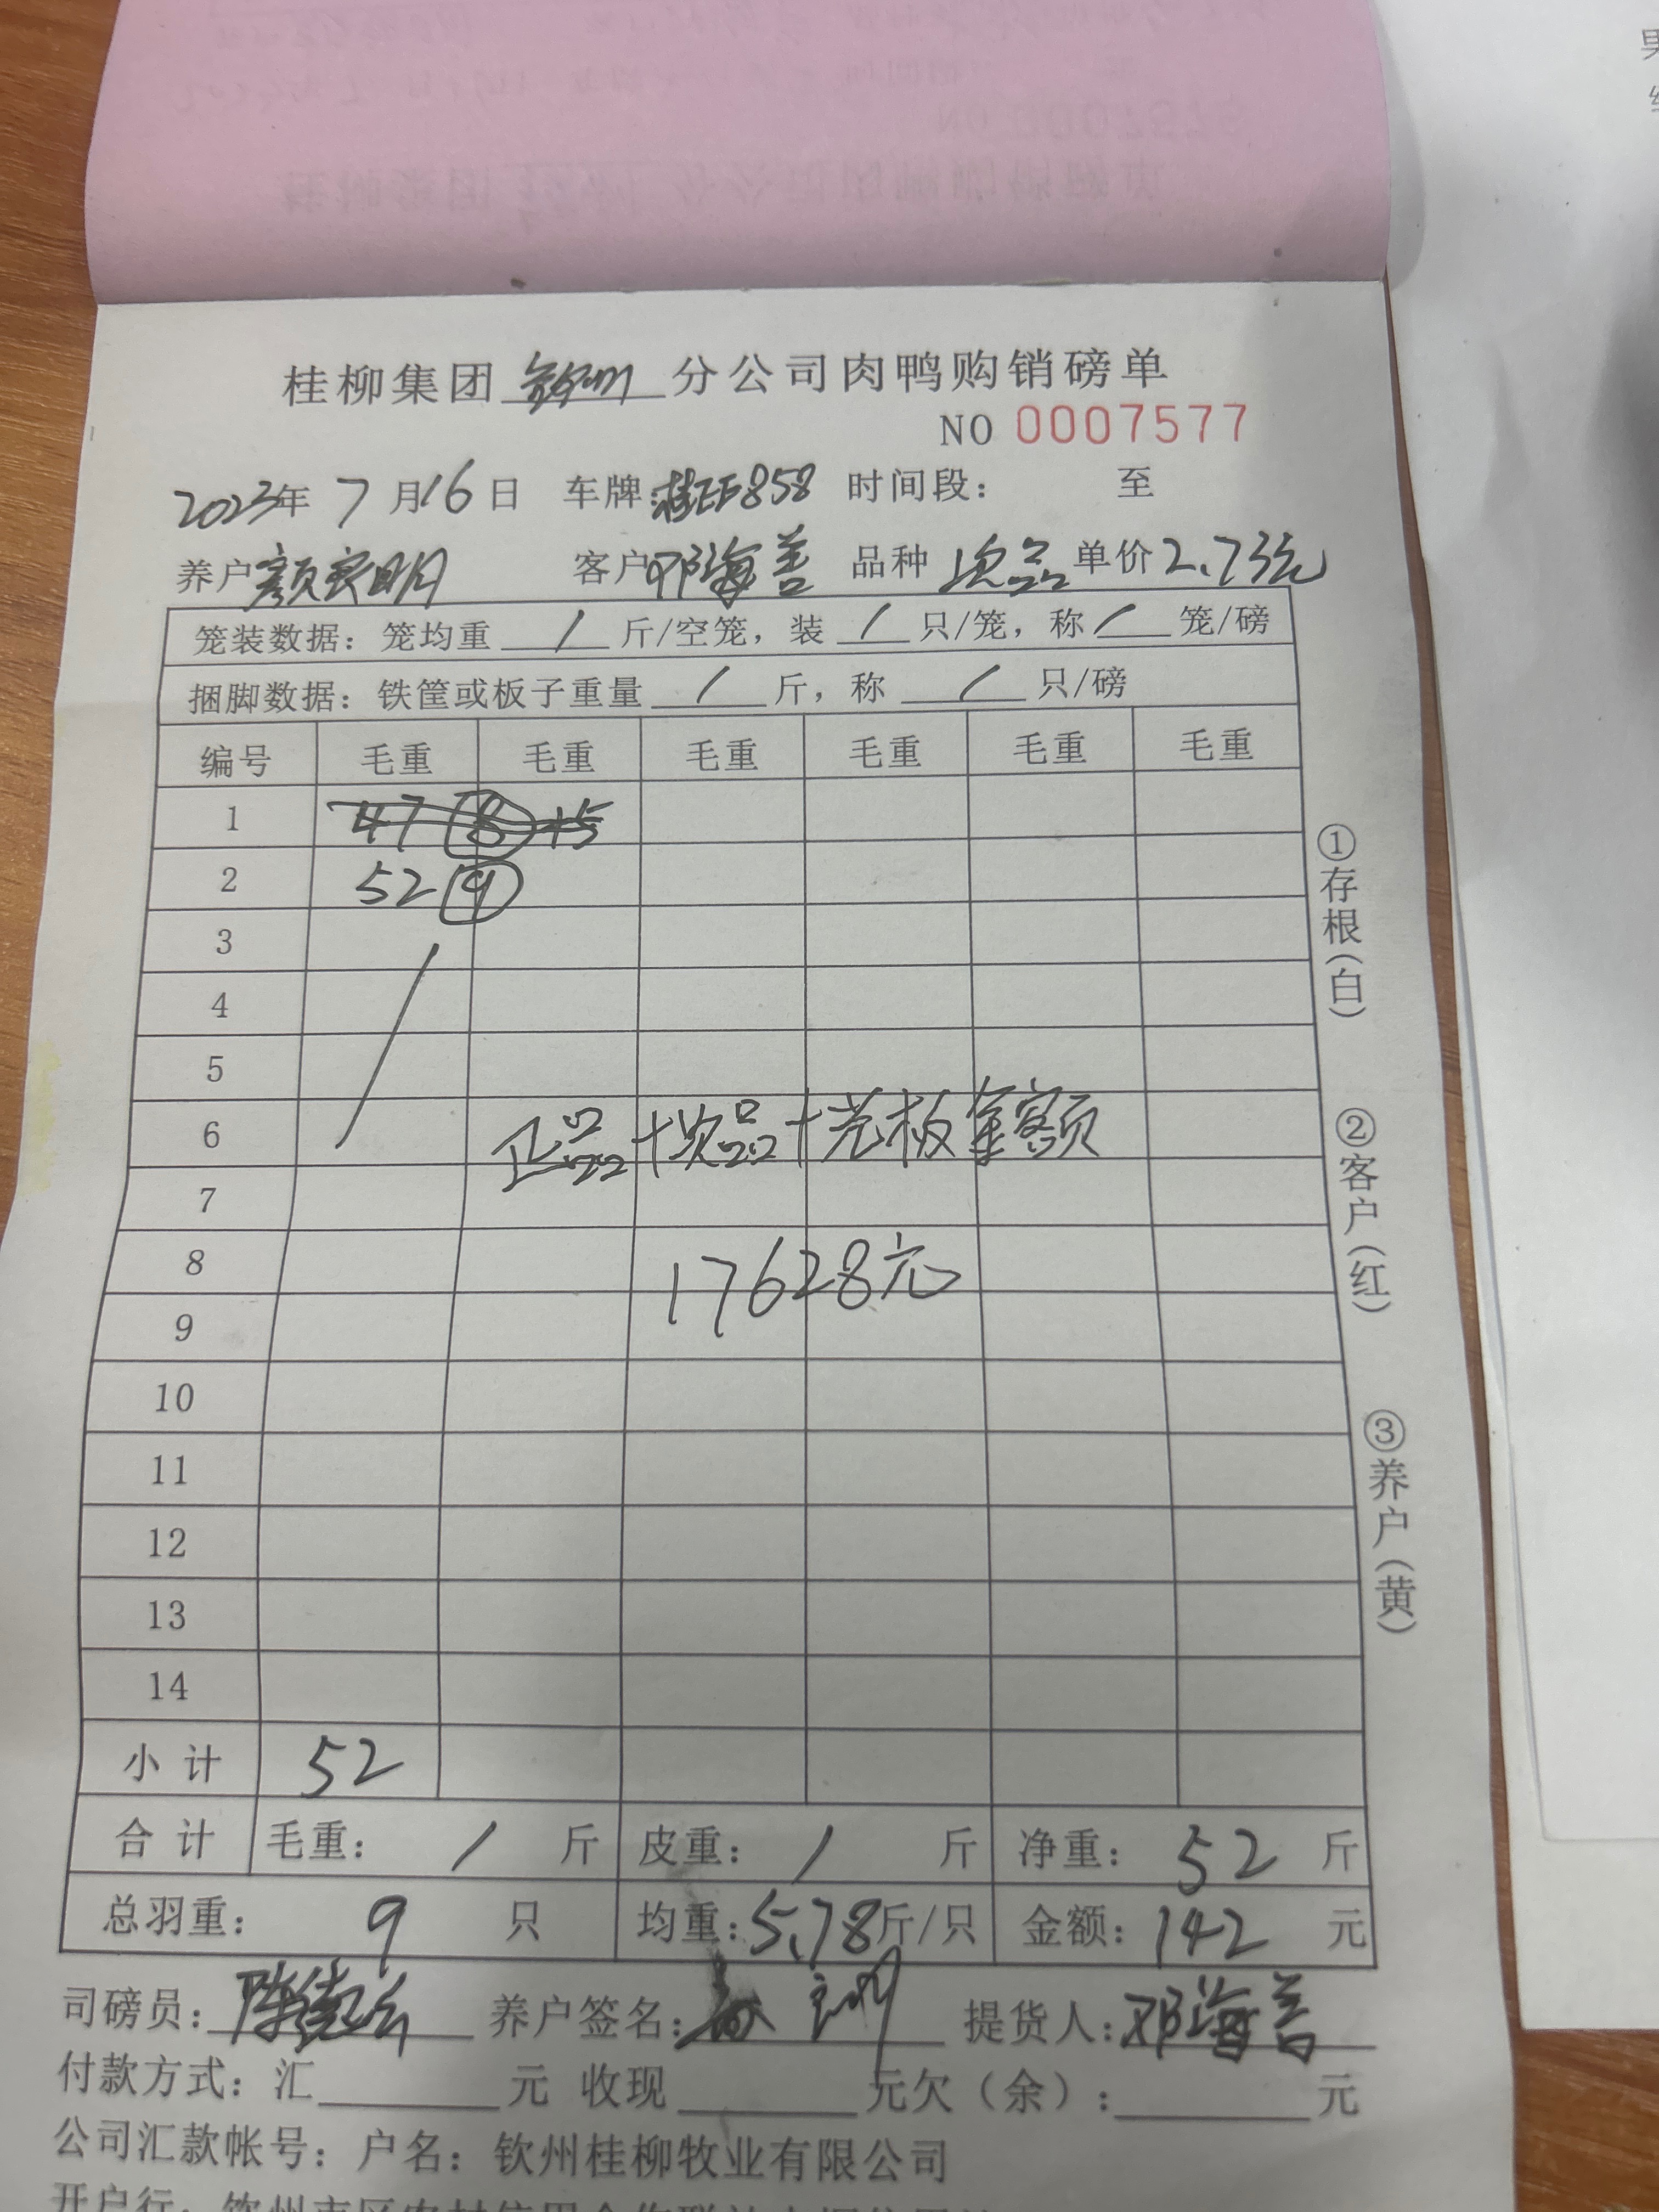 桂柳集团 钦州 分公司肉鸭购销磅单
NO 0007577
2023年 7 月 16 日 车牌: 桂EF858 时间段: 至
养户 颜家明 客户 邓海善 品种 次品 单价 2.73元
笼装数据: 笼均重 / 斤/空笼, 装 / 只/笼, 称 / 笼/磅
捆脚数据: 铁筐或板子重量 / 斤, 称 / 只/磅
编号 毛重 毛重 毛重 毛重 毛重 毛重
1 47 8 +5
2 52 9
3
4
5
6 正品+次品+光板金额
7
8 17628元
9
10
11
12
13
14
小 计 52
合 计 毛重: / 斤 皮重: / 斤 净重: 52 斤
总羽重: 9 只 均重: 5.78 斤/只 金额: 142 元
司磅员: 养户签名: 提货人: 邓海善
付款方式: 汇 元 收现 元欠(余): 元
公司汇款帐号: 户名: 钦州桂柳牧业有限公司
开户行: 钦州市区农村信用合作联社
①存根(白)
②客户(红)
③养户(黄)